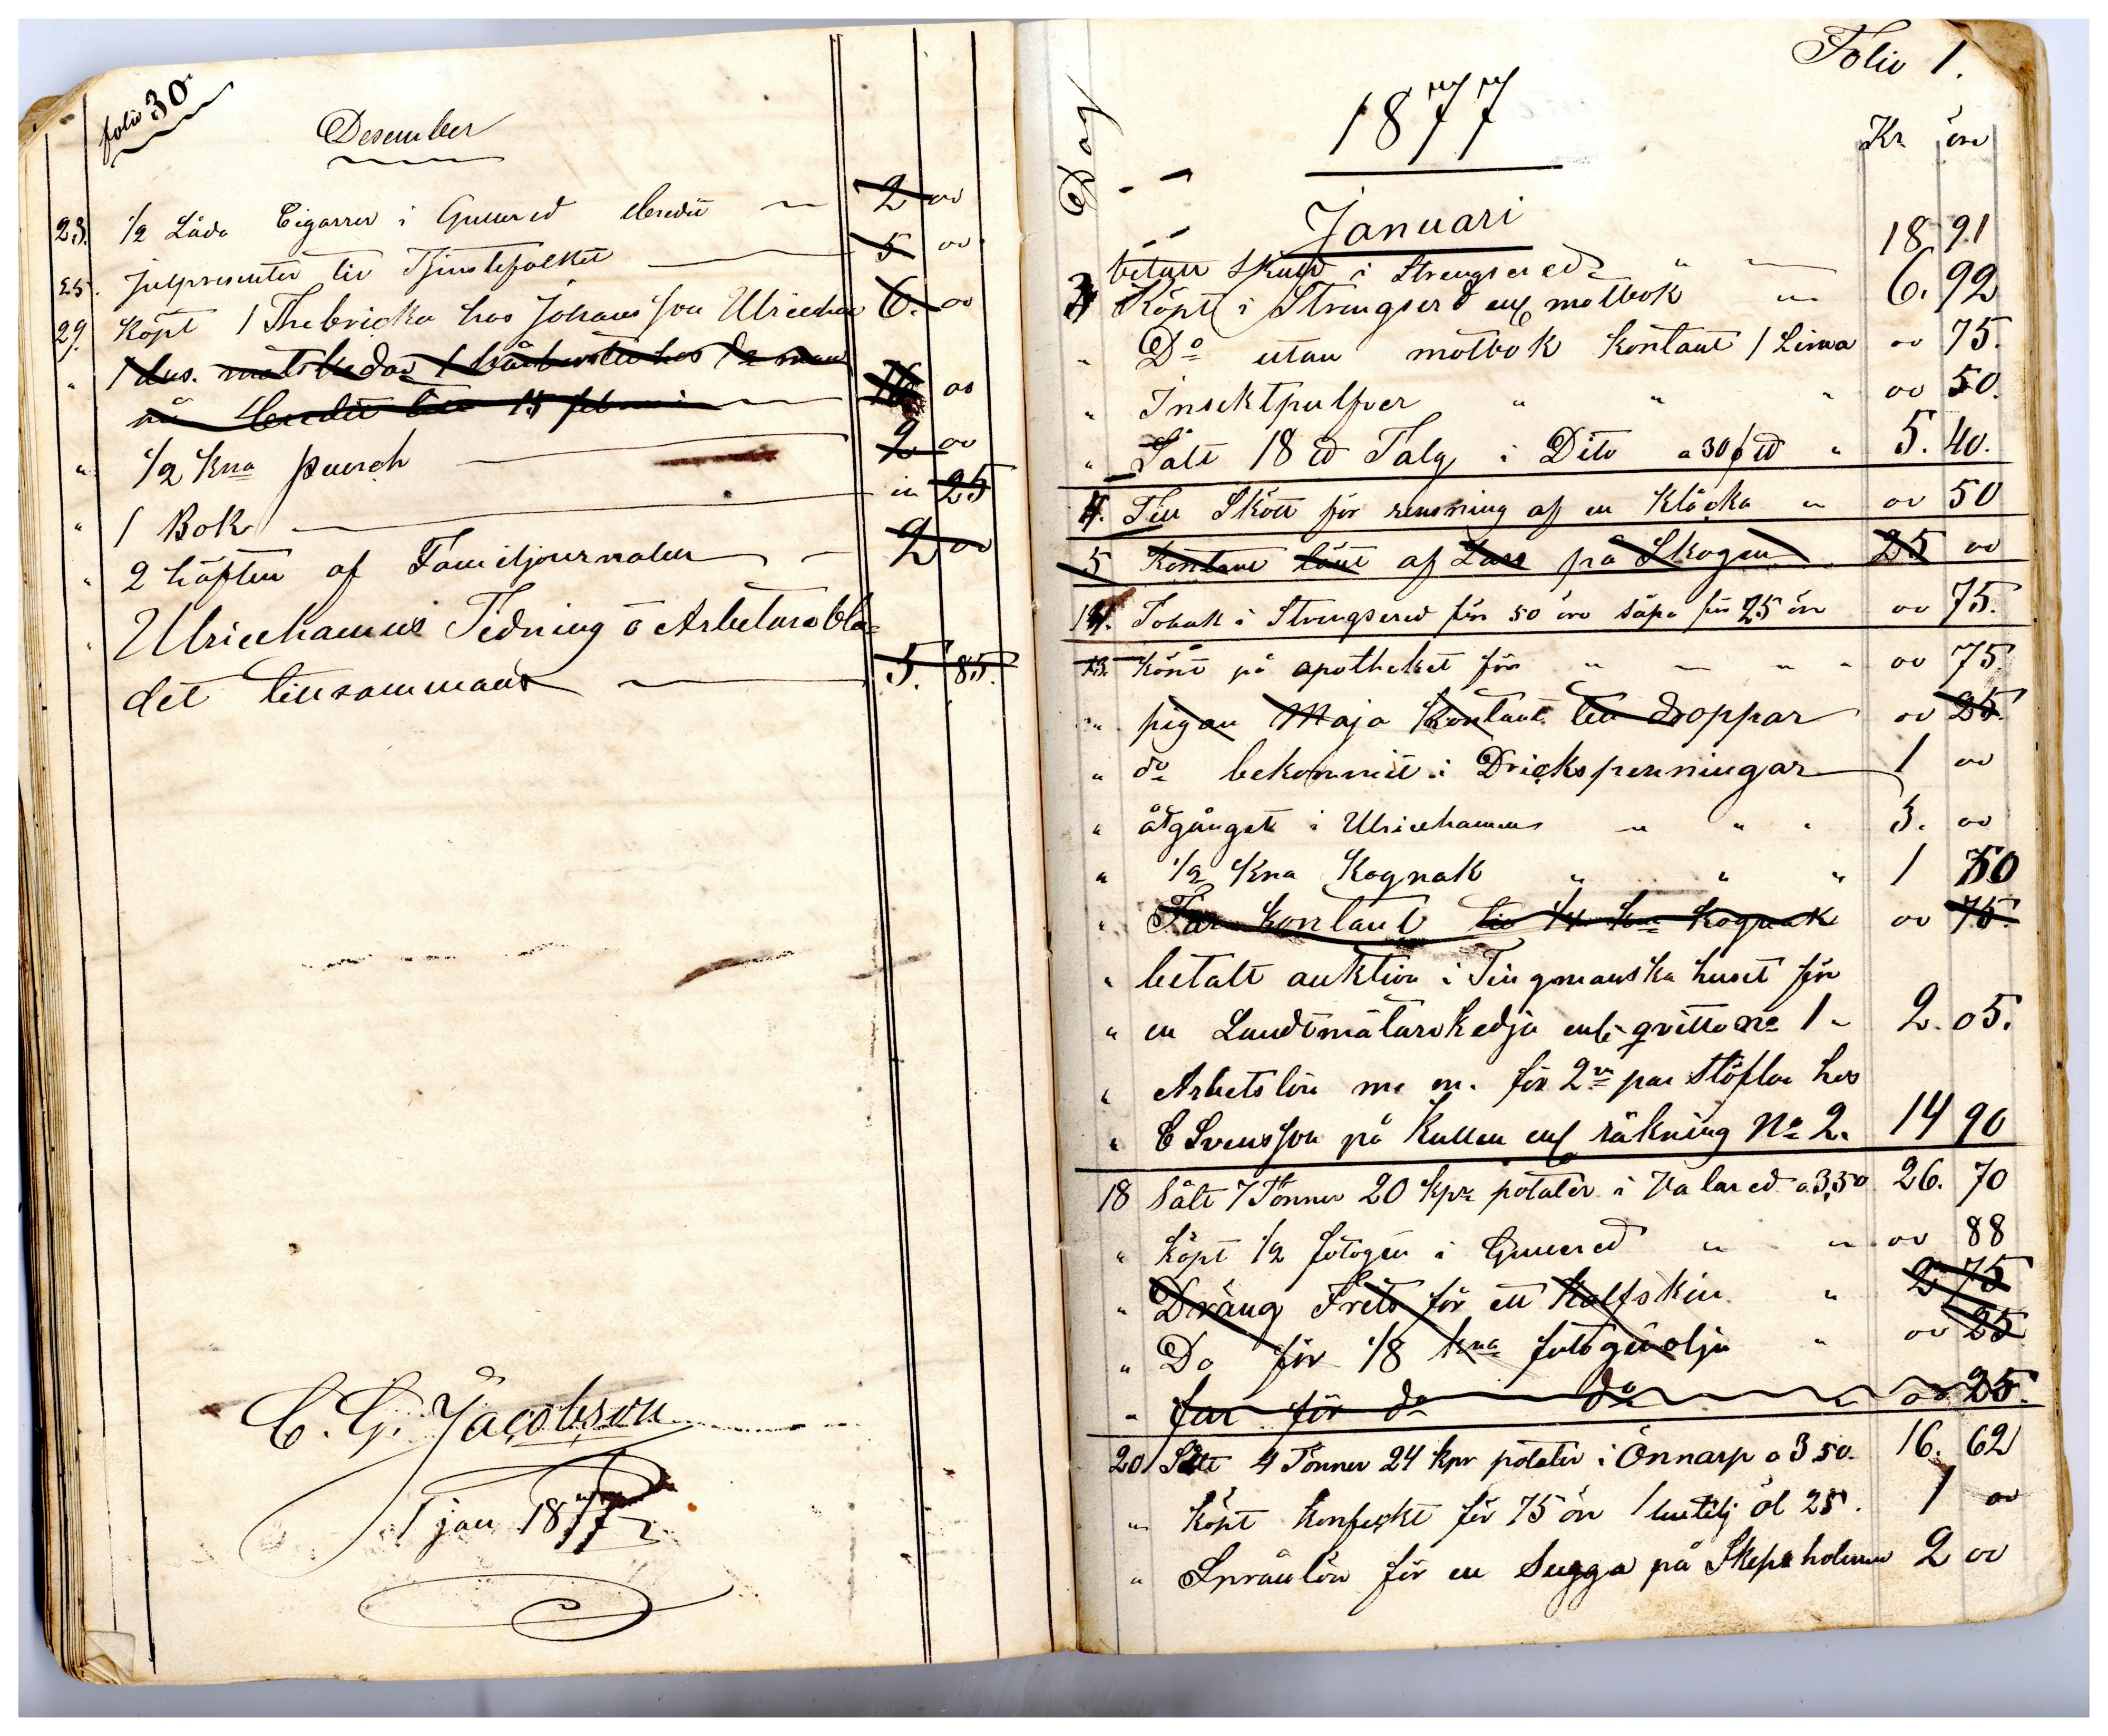 folio 30
Desember
23. 1/2 Låda Cigarrer i Gunered Credit 2 00
25. Julpresenter til Tjenstefolket 5 00
29. Köpt 1 Thebricka hos Johansson Ulricehm 6. 00
" 1 dus. matskedar 1 hos
på Credit till 15 februari 00
" 1/2 Kna punsch 2 00
" 1 Bok 25
" 2 häften af Familjournalen 2 00
" Ulricehamns Tidning o Arbetarebla=
det tillsammans 5. 85.
C. G. Jacobson
1 jan 1877
Folio 1.
Dag
1877
Kr öre
Januari
betalt skuld i Strengsered " 18 91
3 Köpt i Strengsered enl motbok " 6. 92
" Do utan motbok kontant 1 Lima 00 75.
" Insektpulfver " " " 00 50.
" Sålt 18 ℔ Talg i Dito a 30 f ℔ " 5. 40.
4. Till Skött för rensning af en Klåcka " 00 50
5 Kontant lånt af Lars på Skogen 25 00
14. Tobak i Strengsered för 50 öre såpa för 25 öre 00 75.
15. Köpt på apotheket för " " " 00 75.
" pigan Maja Kontant till droppar 00 25.
" do bekommit i Drickspenningar 1 00
" åtgånget i Ulricehamn " " " 3. 00
" 1/2 Kna Kognak " " " 1 50
" Far kontant til 1/4 kna Kognak 00 75.
" betalt auktion i Tingmanska huset för
" en Landtmätarekedja enl. qvitto No 1 " 2. 05.
" Arbetslön m. m. för 2ne par Stöflar hos
" C Svensson på Kullen enl räkning No 2. 14 90
18 Sålt 7 Tönner 20 kpr potater i Valared a 3,50 26. 70
" Köpt 1/2 fotogen i Gunered " " 00 88
" Dräng Frets för ett Kalfskin " 2. 75
" Do för 1/8 kna fotogenolja " 00 25
" far för do do 00 25.
20 Sålt 4 Tönner 24 kpr potater i Önnarp a 3 50. 16. 62
" Köpt Konfeckt för 75 öre 1 butelj öl 25. 1 00
" Språnlön för en Sugga på Skepsholmen 2 00